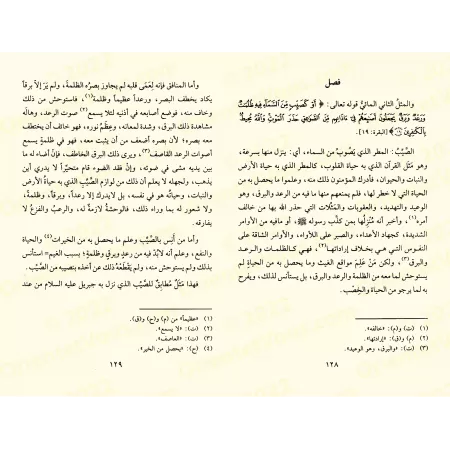 فصل
والمثل الثاني المائيُّ قوله تعالى: ﴿ أَوْ كَصَيِّبٍ مِّنَ ٱلسَّمَآءِ فِيهِ ظُلُمَٰتٌ
وَرَعْدٌ وَبَرْقٌ يَجْعَلُونَ أَصَٰبِعَهُمْ فِىٓ ءَاذَانِهِم مِّنَ ٱلصَّوَٰعِقِ حَذَرَ ٱلْمَوْتِ وَٱللَّهُ مُحِيطٌۢ
بِٱلْكَٰفِرِينَ ﴾ [البقرة: ١٩].
الصَّيِّبُ: المطر الذي يَصُوبُ من السماء، أي: ينزل منها بسرعة،
وهو مَثَل القرآن الذي به حياة القلوب، كالمطر الذي به حياة الأرض
والنبات والحيوان، فأدرك المؤمنون ذلك منه، وعلموا ما يحصل به من
الحياة التي لا خطر لها، فلم يمنعهم منها ما فيه من الرعد والبرق، وهو
الوعيد والتهديد، والعقوبات والمَثُلات التي حذر الله بها من خالف
أمره(١)، وأخبر أنه مُنْزِلُها بمن كذَّب رسوله ﷺ، أو ما فيه من الأوامر
الشديدة، كجهاد الأعداء، والصبر على اللأواء، والأوامر الشاقة على
النفوس التي هي بخلاف إراداتها(٢)، فهي كالظلمات والرعد
والبرق(٣)، ولكن مَنْ عَلِمَ مواقع الغيث وما يحصل به من الحياة لم
يستوحش لما معه من الظلمة والرعد والبرق، بل يستأنس لذلك، ويفرح
به لما يرجو من الحياة والخِصْب.
(١) (ت) و(م): «خالفه».
(٢) (م) و(ق): «إرادتها».
(٣) (ت): «والبرق، وهو الوعيد».
١٢٨
وأما المنافق فإنه لِعَمَى قلبه لم يجاوز بصرُه الظلمةَ، ولم يَرَ إلاَّ برقاً
يكاد يخطف البصر، ورعداً عظيماً وظلمة(١)، فاستوحش من ذلك
وخاف منه، فوضع أصابعه في أذنيه لئلا يسمع(٢) صوت الرعد، وهاله
مشاهدة ذلك البرق، وشدة لمعانه، وعِظَمُ نوره؛ فهو خائف أن يختطف
معه بصره؛ لأن بصره أضعف من أن يثبت معه، فهو في ظلمةٍ يسمع
أصوات الرعد القاصف(٣)، ويرى ذلك البرق الخاطف، فإنْ أضاء له ما
بين يديه مشى في ضوئه، وإنْ فقد الضوء قام متحيراً لا يدري أين
يذهب، ولجهله لا يعلم أن ذلك من لوازم الصَّيِّبِ الذي به حياةُ الأرض
والنبات، وحياتُه هو في نفسه، بل لايدرك إلا رعداً، وبرقاً، وظلمةً،
ولا شعور له بما وراء ذلك، فالوحشةُ لازمةٌ له، والرعبُ والفزعُ لا
يفارقه.
وأما من أَنِسَ بالصَّيِّب وعلم ما يحصل به من الخيرات(٤) والحياة
والنفع، وعلم أنه لابُدَّ فيه من رعدٍ وبرقٍ وظلمةٍ؛ بسبب الغيم= استأنس
بذلك ولم يستوحش منه، ولم يَقْطَعْهُ ذلك عن أخذه بنصيبه من الصَّيِّب.
فهذا مَثَلٌ مُطابِقٌ للصَّيِّب الذي نزل به جبريل عليه السلام من عند
(١) «عظيماً» من (م) و(ح) و(ق).
(٢) (ت): «لا يسمع».
(٣) (ت): «العاصف».
(٤) (ح): «يحصل من الخير».
١٢٩